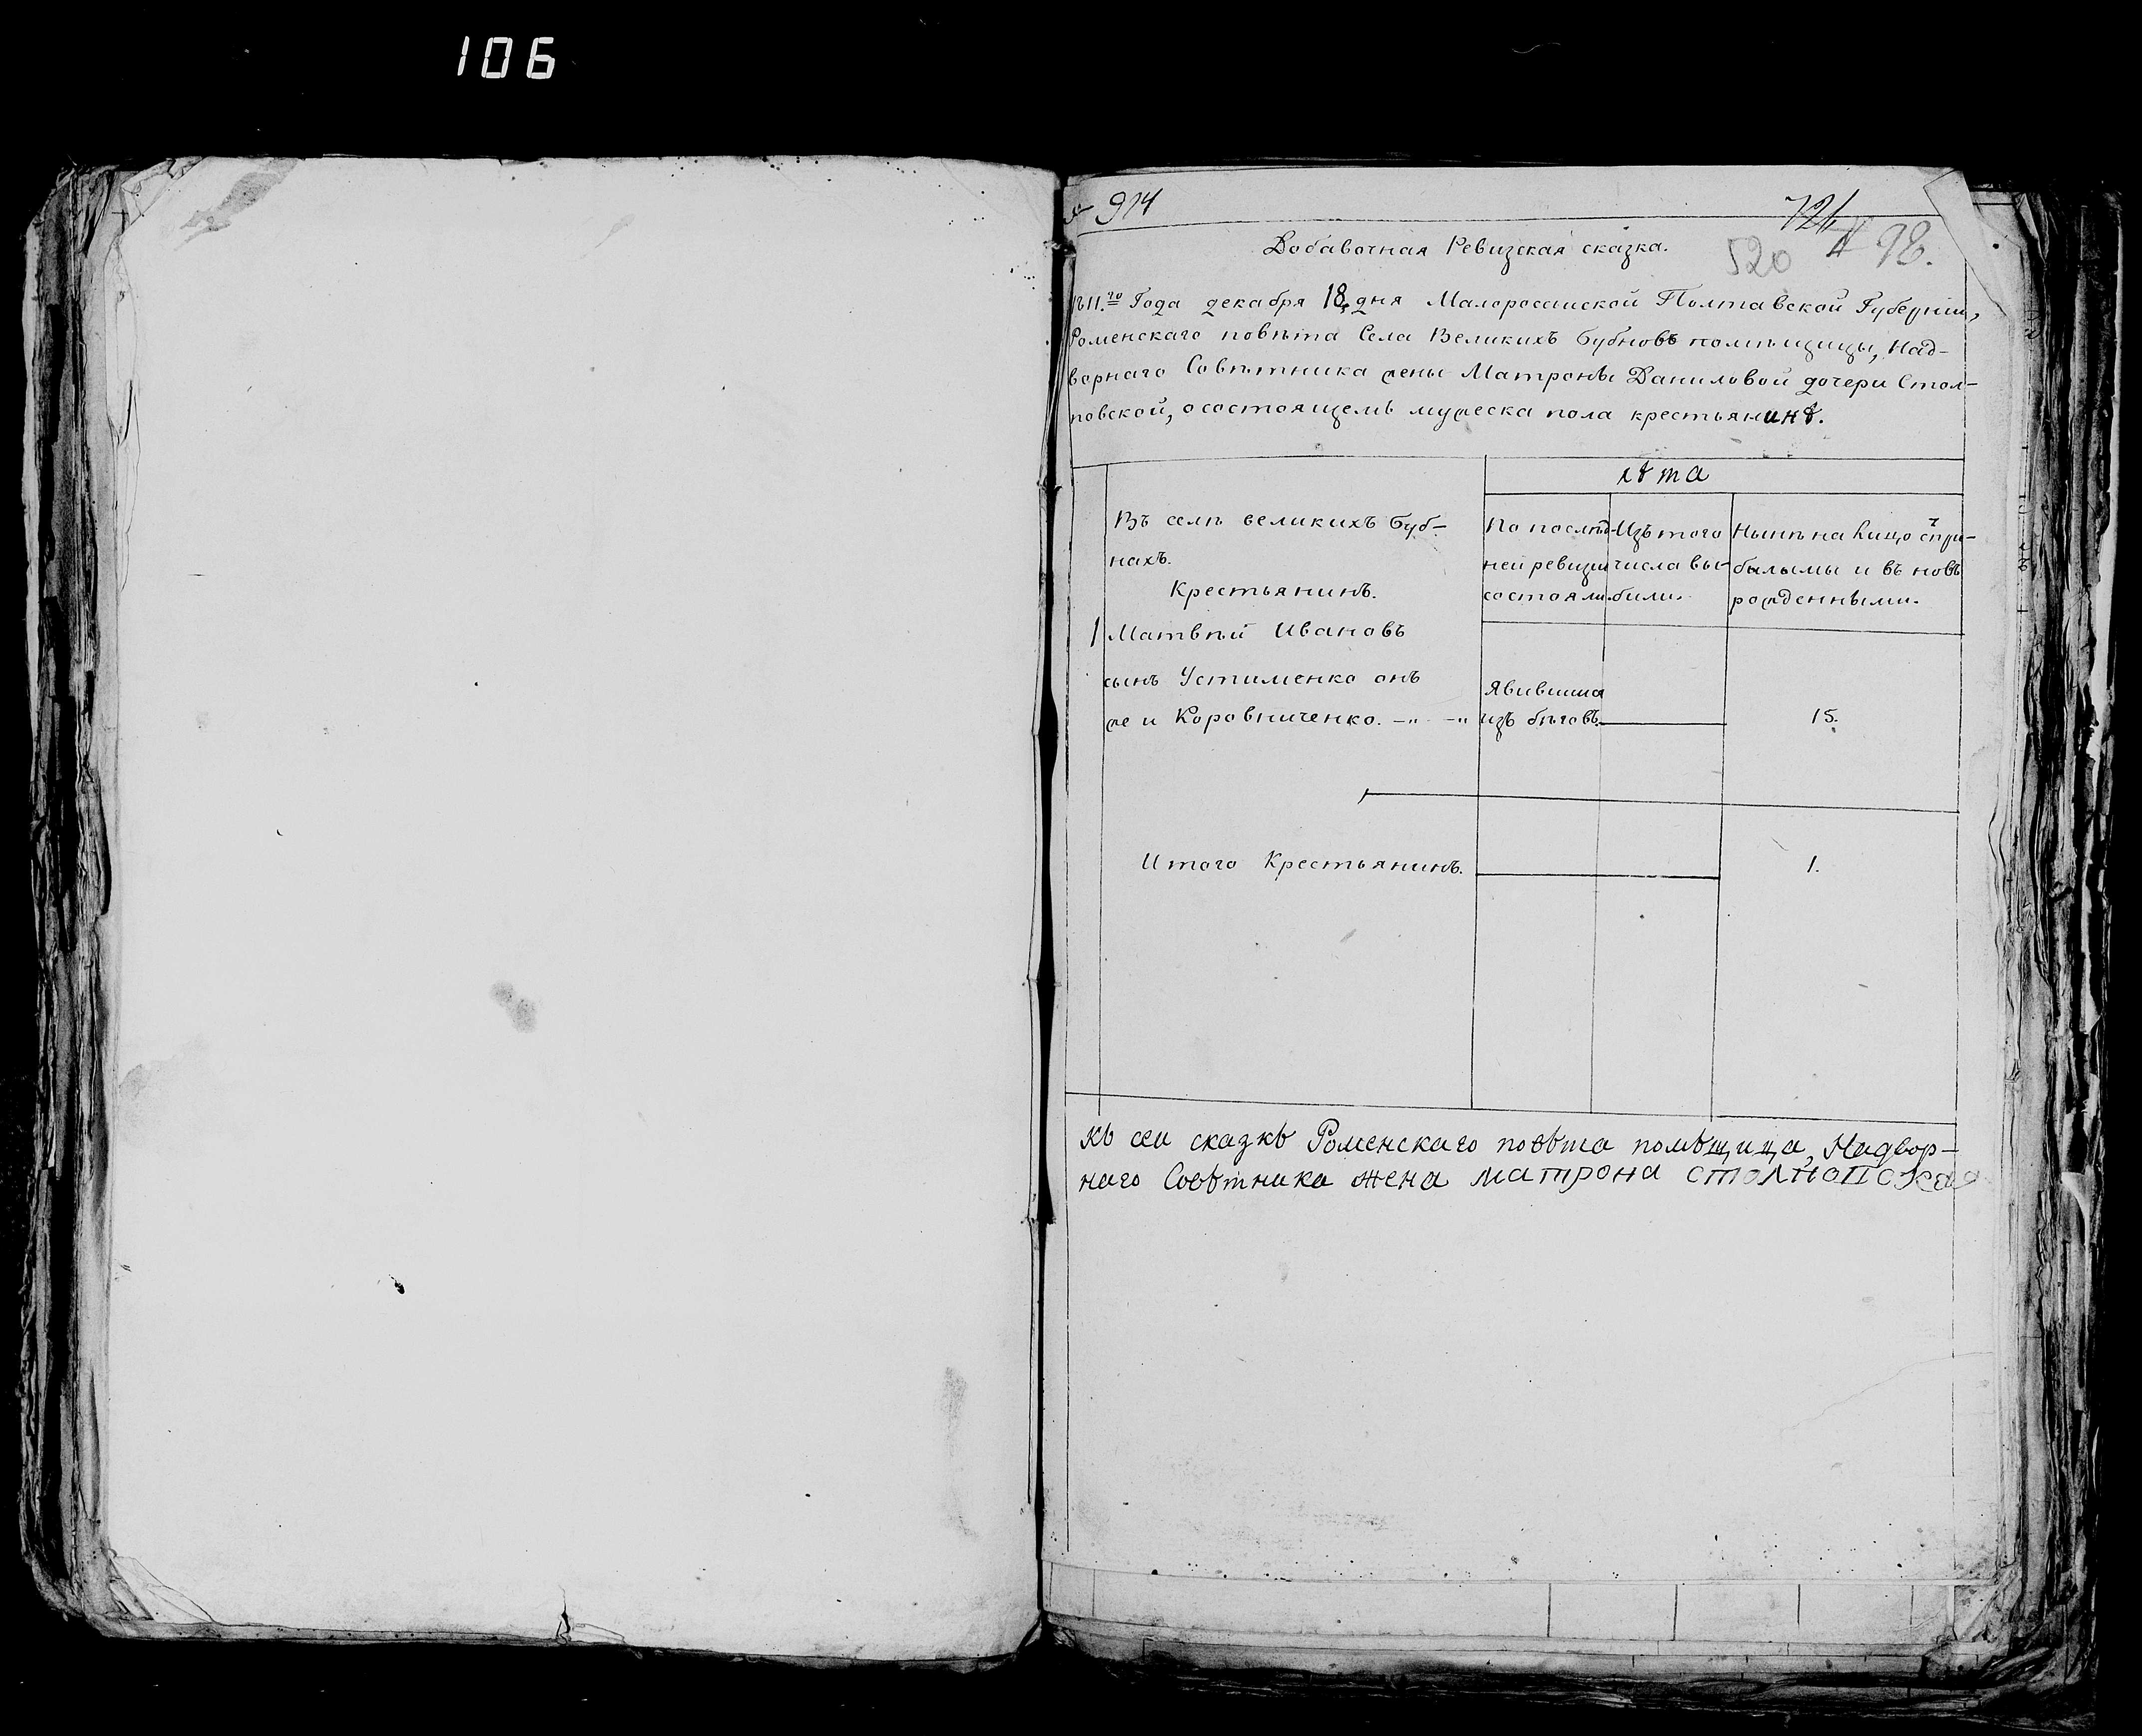 106
№ 914
724
Добавочная Ревизская сказка.
520 98.
1811.го Года декабря 18 дня Малоросииской Полтавской Губернии,
Роменскаго повѣта Села Великихъ Бубновъ помѣщицы, Над-
ворнаго Совѣтника жены Матроны Даниловой дочери Стол-
повской, осостоящемъ мужеска пола крестьянинѣ.
лѣта
Въ селѣ великихъ Буб-
нахъ.
Крестьянинъ.
По послѣд-
ней ревизии
состояли.
Изъ того
числа вы-
были.
Нынѣ на лицо спри-
былымы и въ новъ
рожденными.
1 Матвѣй Ивановъ
сынъ Устименко онъ
же и Коровниченко. –„– –„
Явившися
изъ бѣговъ.
15.
Итого Крестьянинъ.
1.
Къ сеи сказкѣ Роменскаго повѣта помѣщица, Надвор-
наго Совѣтника жена матрона столповская